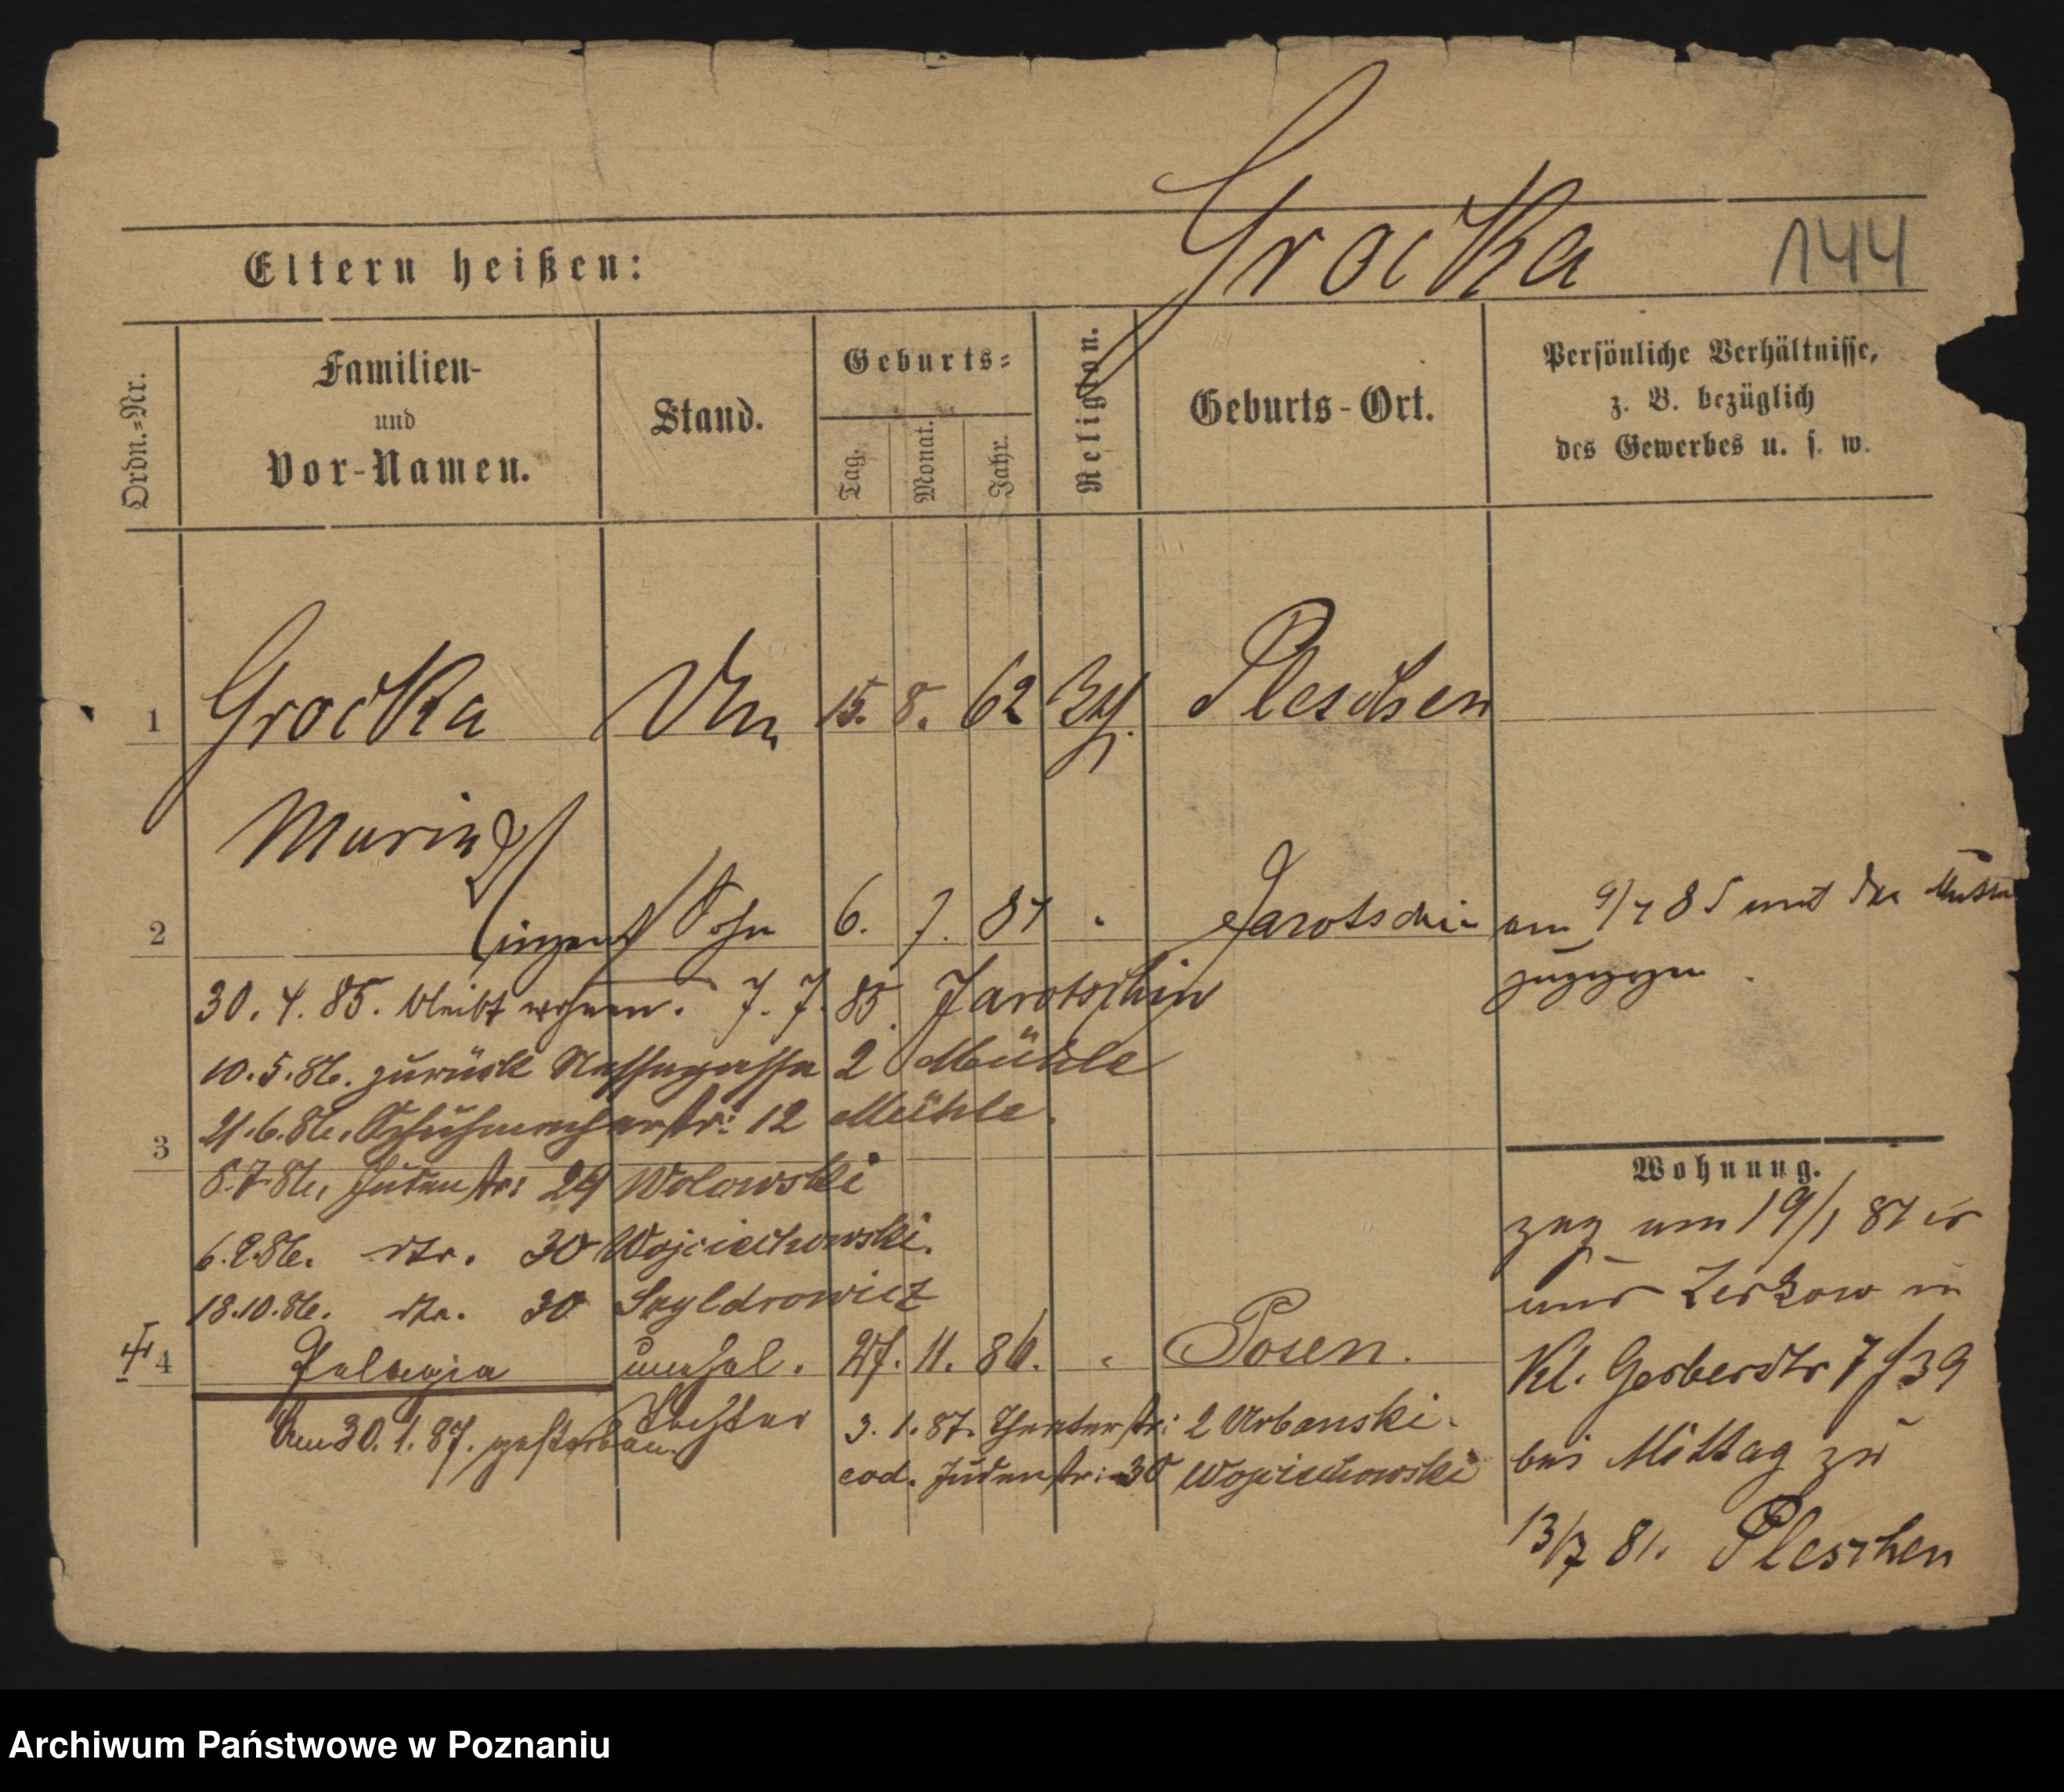 Grocka
144
Eltern heißen:
Ordn.-Nr.
Familien-
und
Vor-Namen.
Stand.
Geburts-
Tag.
Monat.
Jahr.
Religion.
Geburts-Ort.
Persönliche Verhältnisse,
z. B. bezüglich
des Gewerbes u. s. w.
1 Grocka 15. 8. 62 Pleschen
Maria
2 Sohn 6. 7. 84 " Jarotschin am 9/7 85 mit der Mutter
zugezogen
30. 4. 85. bleibt wohnen. 7. 7. 85. Jarotschin
10. 5. 86. zurück Nassegasse 2 Mühle
21. 6. 86. Schuhmacherstr: 12 Mühle.
3
8. 7. 86. Judenstr: 29 Wolowski
Wohnung.
zog am 19/1 84
6. 9. 86. dto. 30 Wojciechowski.
18. 10. 86. dto. 30
Zerkow
4 Pelagia unehel. 27. 11. 86. " Posen.
Tochter
Kl. Gerberstr 7 f 39
Am 30. 1. 87. gestorben.
3. 1. 87. Theaterstr: 2 Urbanski.
bei Mittag zu
eod. Judenstr: 30 Wojciechowski
13/7 81. Pleschen
Archiwum Państwowe w Poznaniu